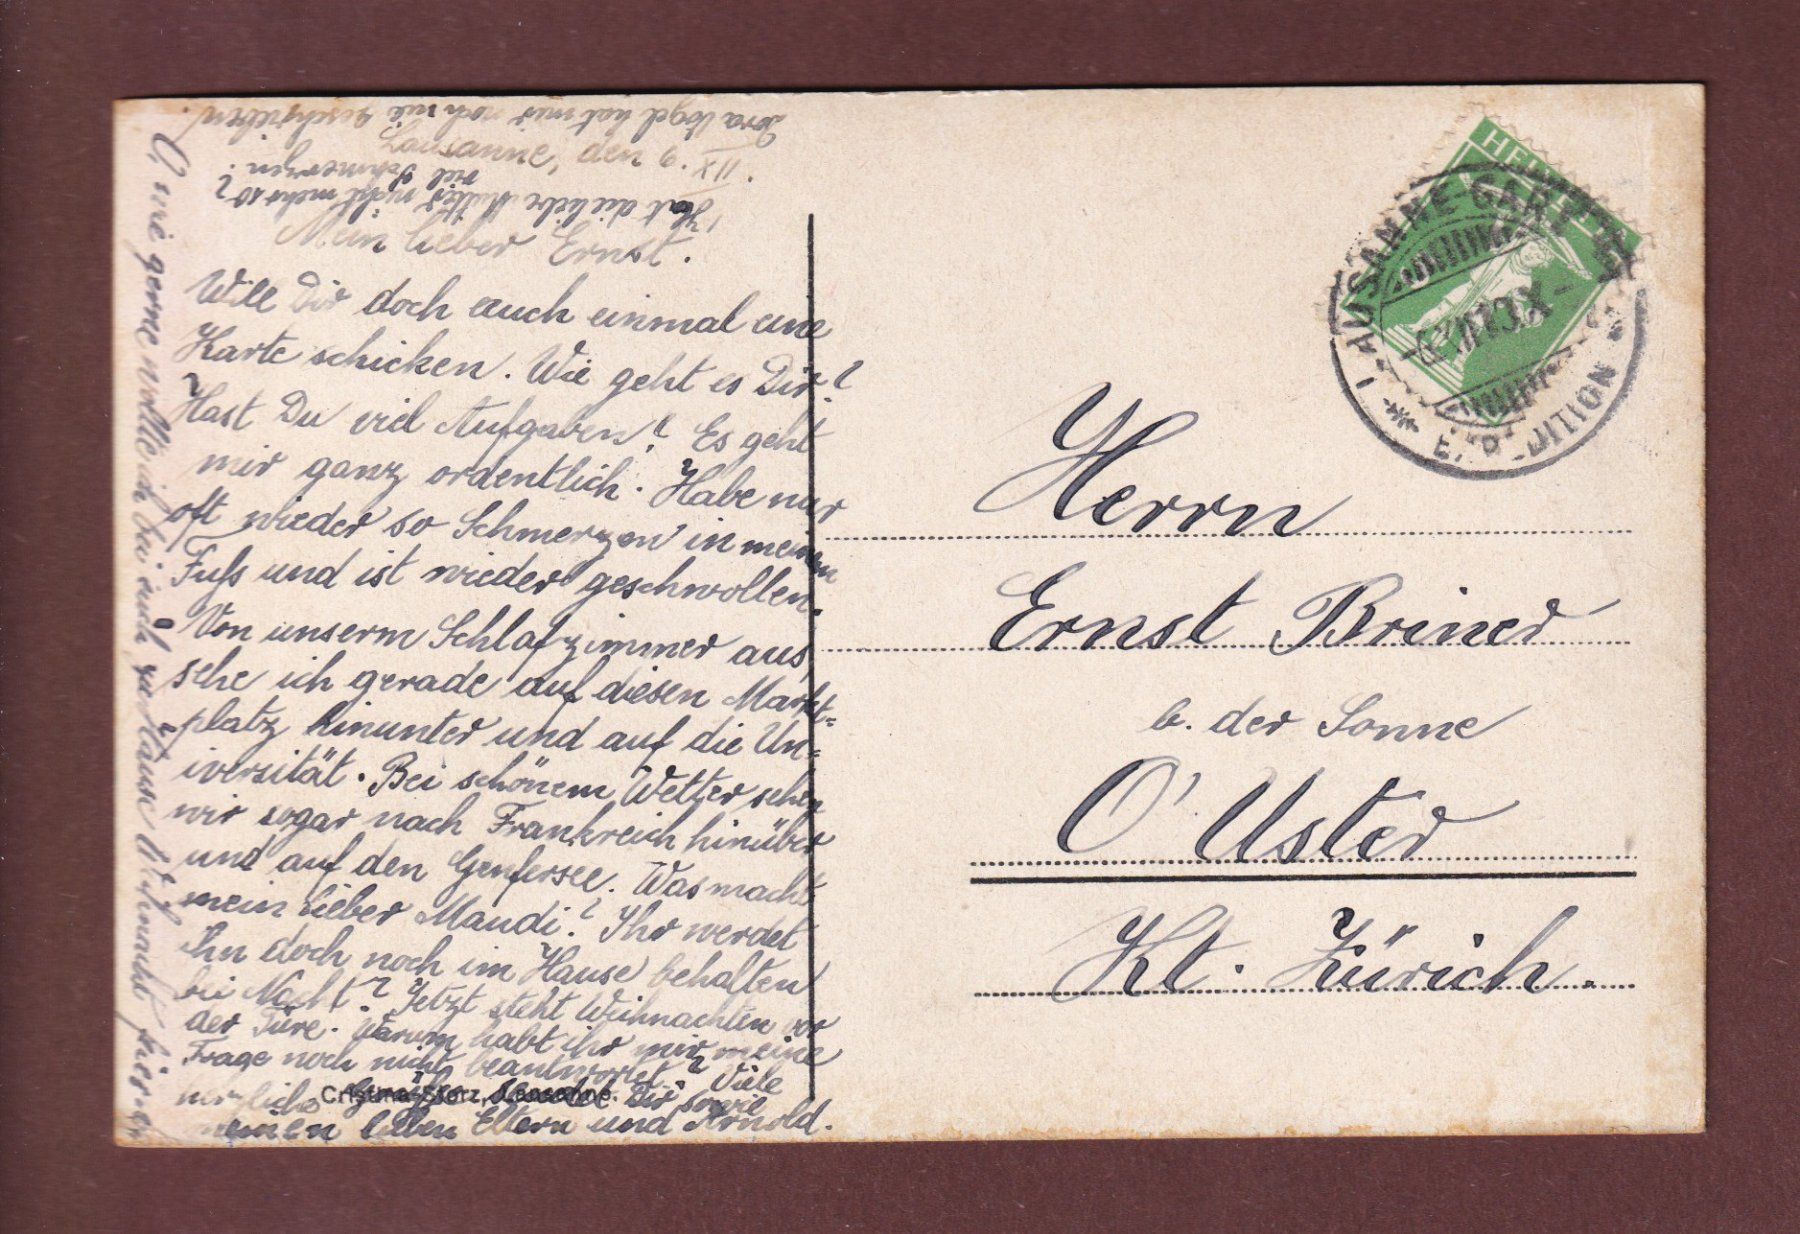 Dora Vogel hat mir noch nie geschrieben.
Lausanne, den 9. XII.
Hat die liebe Mutter nicht mehr so
viel Schmerzen?
Mein lieber Ernst.
Will Dir doch auch einmal eine
Karte schicken. Wie geht es Dir?
Hast Du viel Aufgaben? Es geht
mir ganz ordentlich. Habe nur
oft wieder so Schmerzen in meinem
Fuss und ist wieder geschwollen.
Von unserm Schlafzimmer aus
sehe ich gerade auf diesen Markt=
platz hinunter und auf die Un=
iversität. Bei schönem Wetter sehen
wir sogar nach Frankreich hinüber
und auf den Genfersee. Was macht
mein lieber Maudi? Ihr werdet
ihn doch noch im Hause behalten
bei Nacht? Jetzt steht Weihnachten vor
der Türe. Warum habt ihr mir meine
Frage noch nicht beantwortet? Viele
herzliche Grüsse sendet Dir sowie
meinen lieben Eltern und Arnold.
O, wie gerne wollte ich bei euch zu Hause Weihnacht feiern
Cristina-Sterz, Lausanne.
HELVETIA
LAUSANNE GARE
EXPEDITION
Herrn
Ernst Briner
b. der Sonne
O' Uster
Kt. Zürich.